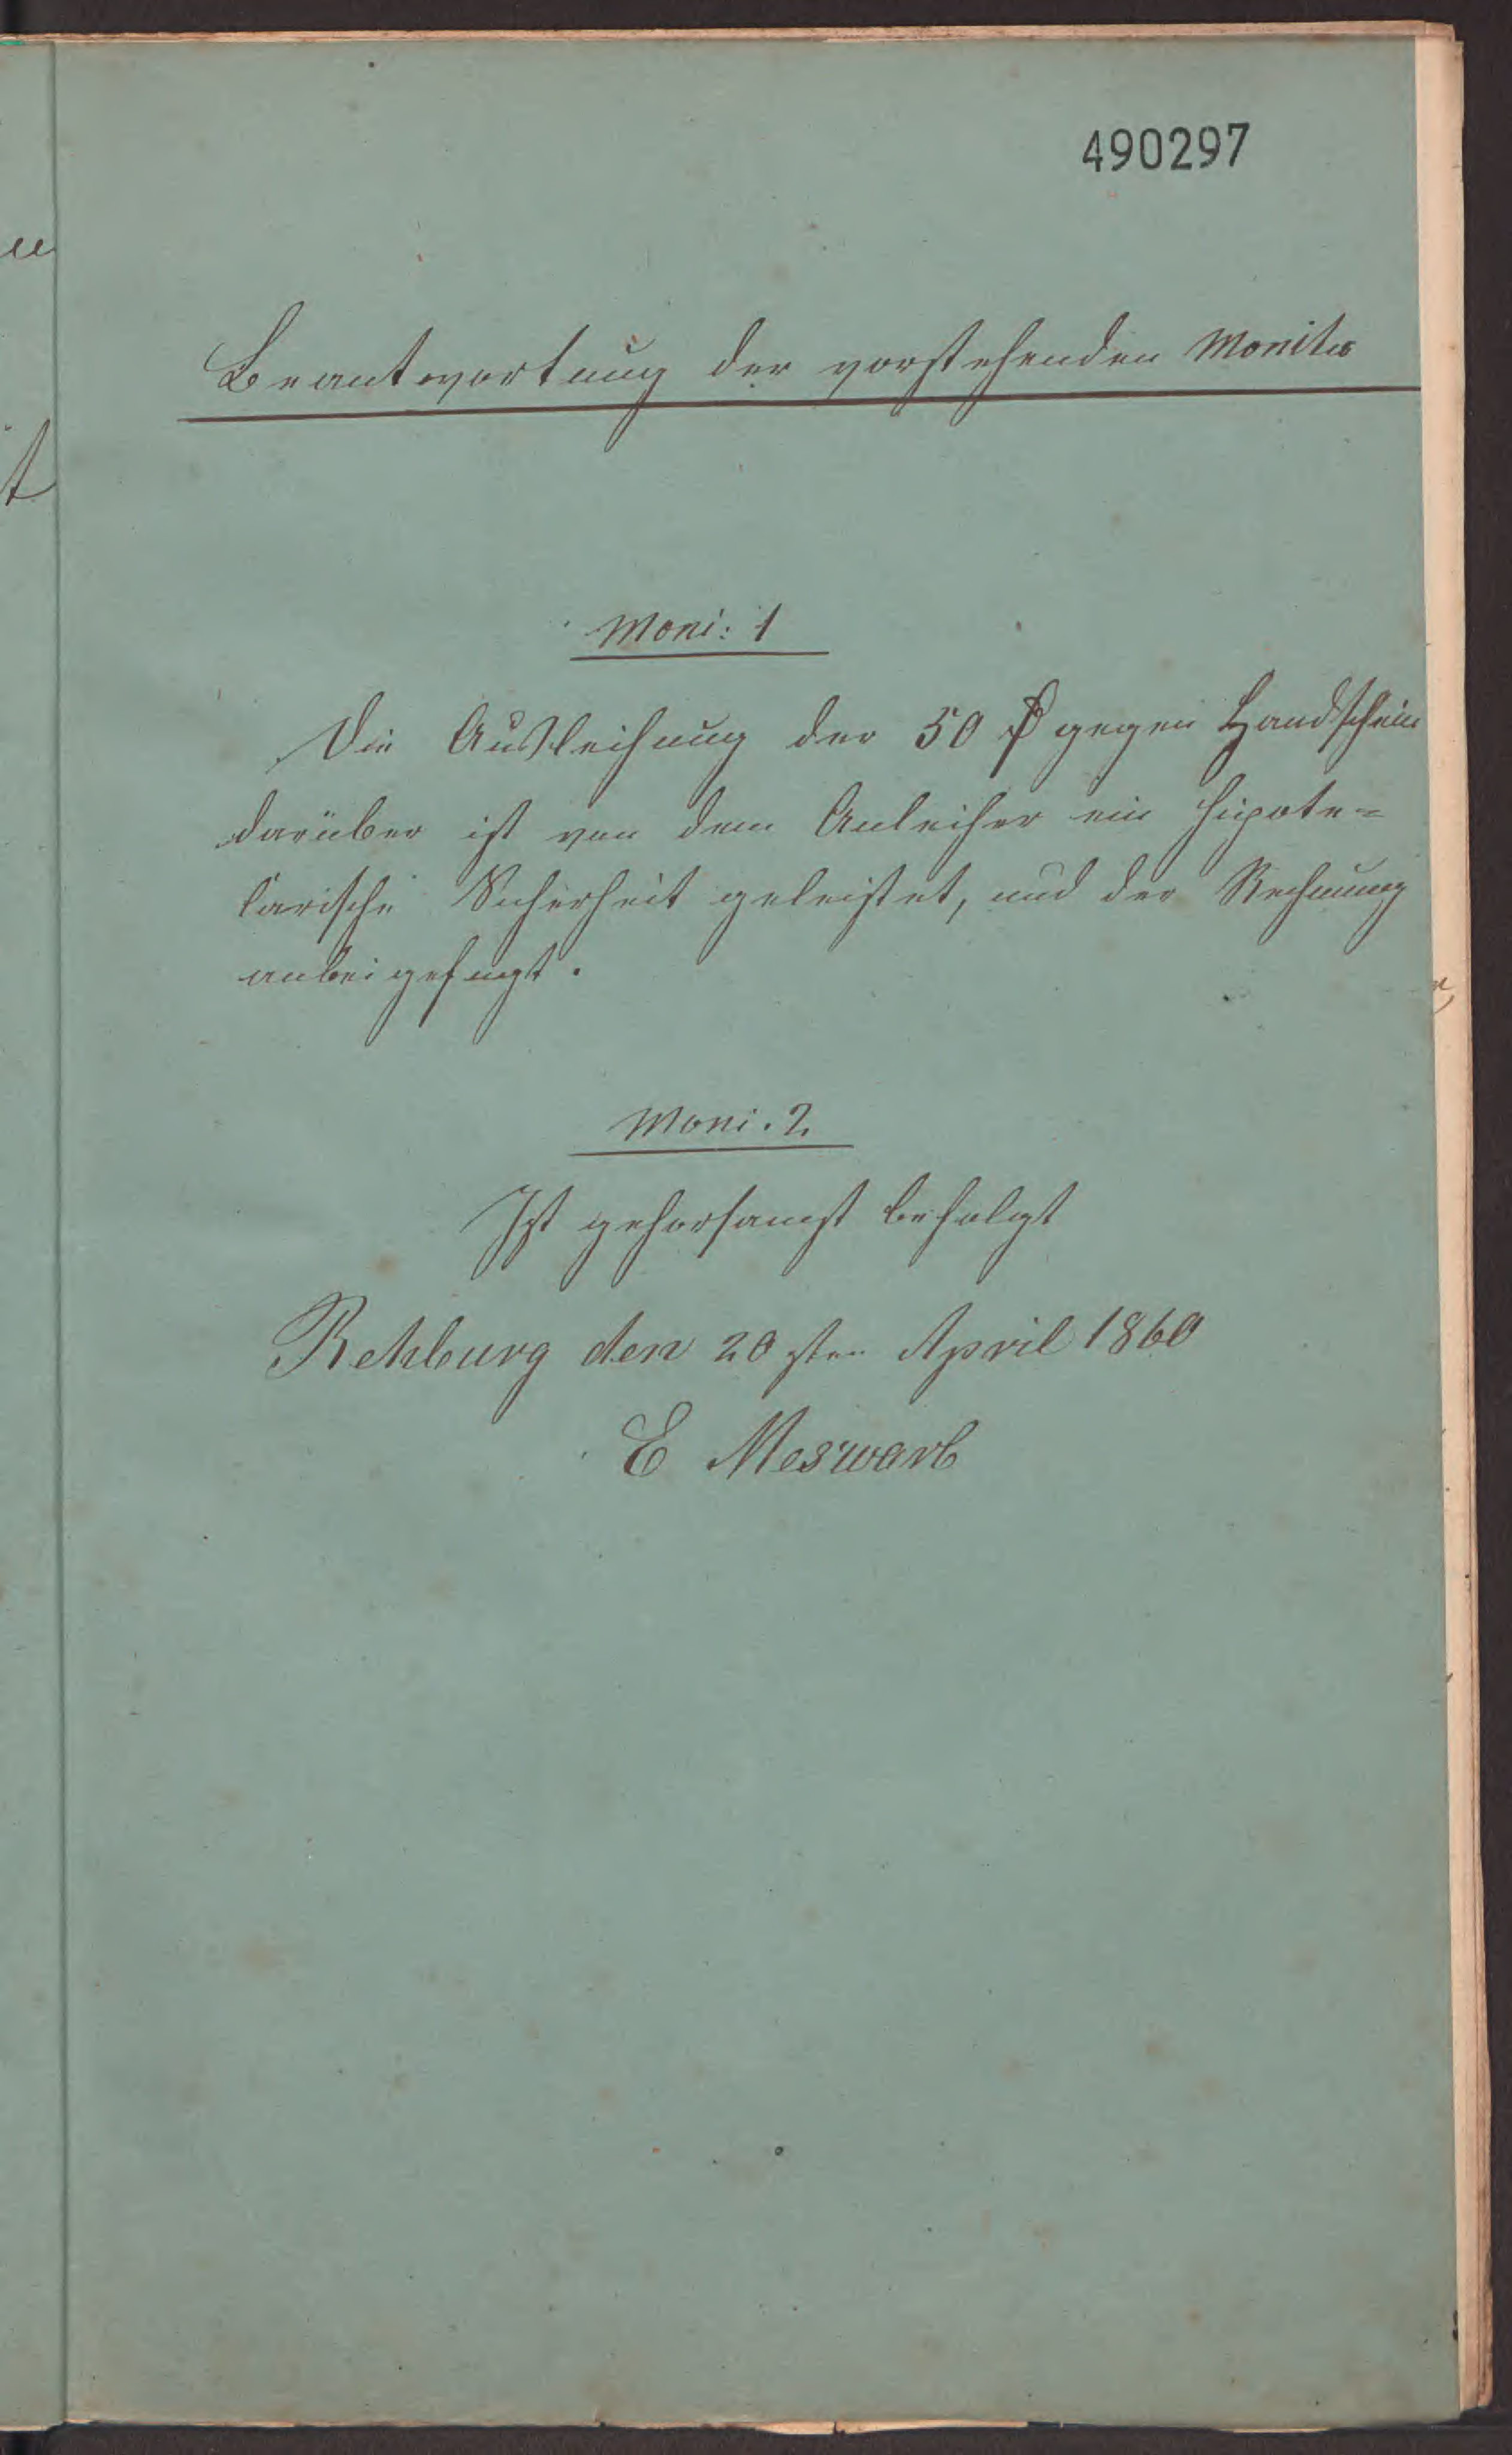 490297
Beantwortung der vorstehenden Monita
Moni: 1
Die Ausleihung der 50 ₰ gegen Handschein
darüber ist von dem Anleiher ein hipote=
karische Sicherheit geleistet, und der Rechnung
anbei gefügt.
Moni. 2
Ist gehorsamst befolgt
Rehburg den 20sten April 1860
E Meswarb